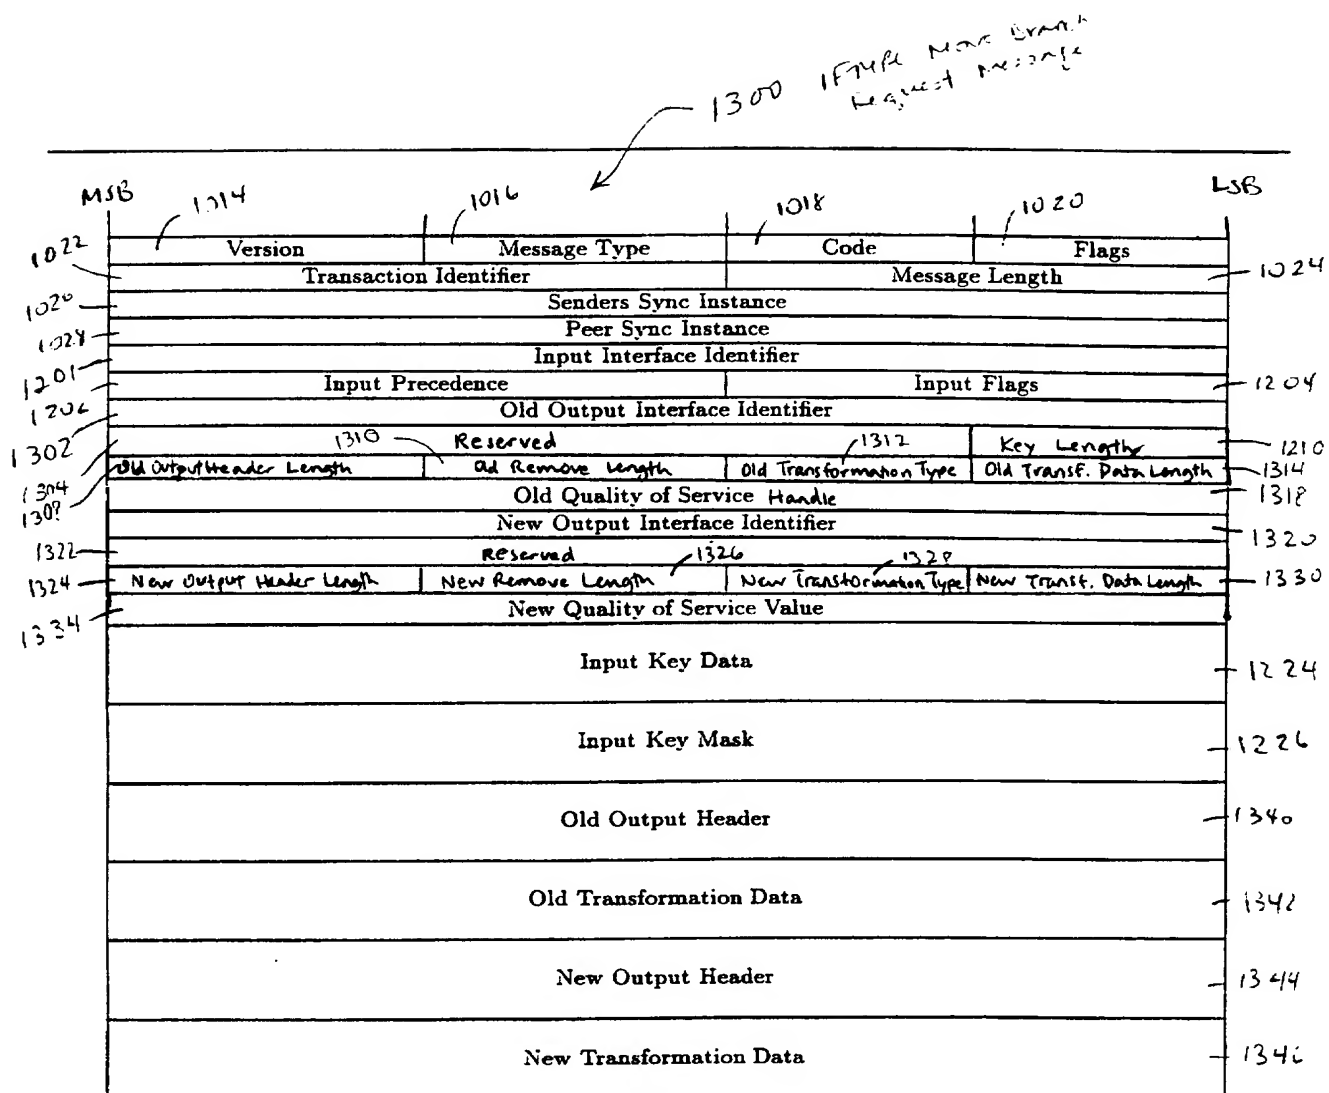 1300 Move Branch
Request Message
MSB LSB
1014 1016 1018 1020
1022 Version Message Type Code Flags
Transaction Identifier Message Length 1024
Senders Sync Instance
1028 Peer Sync Instance
1201 Input Interface Identifier
Input Precedence Input Flags 1204
1206 Old Output Interface Identifier
1302 1310 Reserved 1312 Key Length 1210
1304 Old Output Header Length Old Remove Length Old Transformation Type Old Transf. Data Length 1314
Old Quality of Service Handle 1318
New Output Interface Identifier 1320
1322 Reserved 1326 1328
1324 New Output Header Length New Remove Length New Transformation Type New Transf. Data Length 1330
1334 New Quality of Service Value
Input Key Data 1224
Input Key Mask 1226
Old Output Header 1340
Old Transformation Data 1342
New Output Header 1344
New Transformation Data